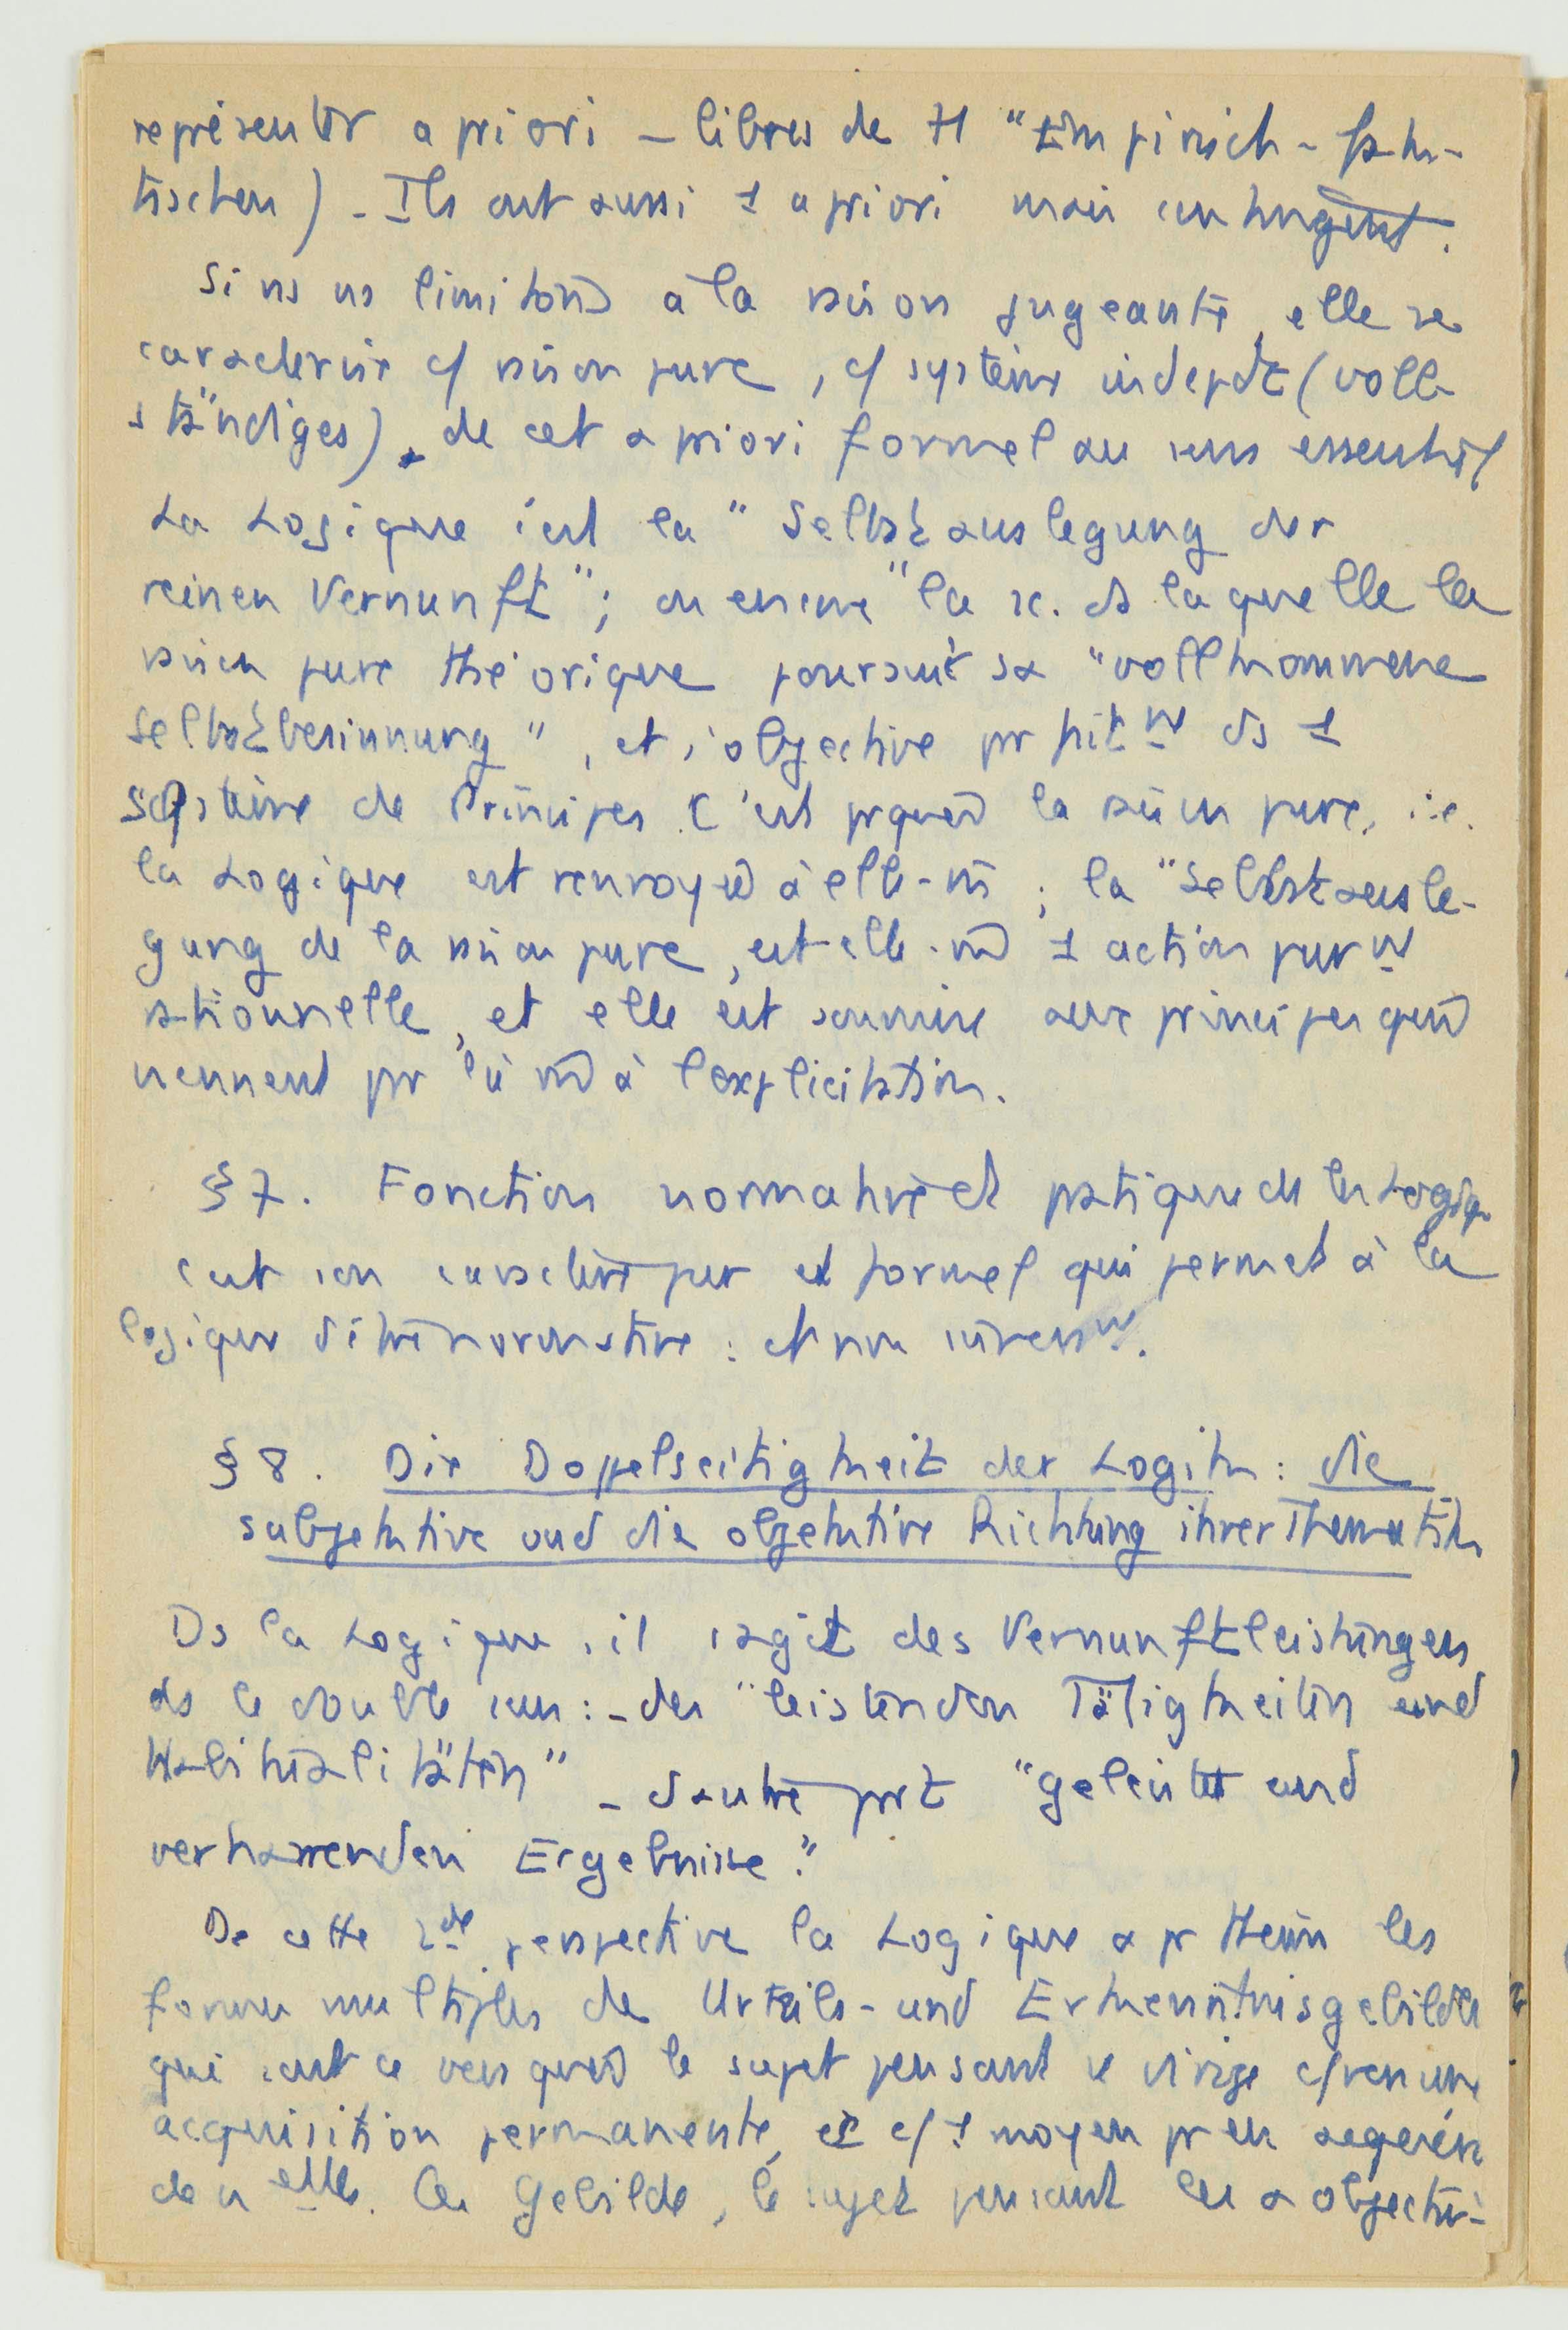 représenter a priori – libres de tt "Empirisch-fak-
tischen) – Ils ont aussi 1 a priori mais contingent.
Si ns ns limitons à la raison jugeante, elle se
caractérise c/ raison pure, c/ système indepdt (voll-
ständiges), de cet a priori formel au sens essentiel
La Logique c'est la "Selbstauslegung der
reinen Vernunft"; ou encore "la sc. ds laquelle la
raison pure théorique poursuit sa "vollkommene
Selbstbesinnung", et s'objective prfaitmt ds 1
système de Principes. C'est prquoi la raison pure, i.e.
la Logique est renvoyée à elle-m̄ ; la "Selbstausle-
gung de la raison pure, est elle-m̄ 1 action purmt
rationnelle, et elle est soumise aux principes qui
viennent pr là m̄ à l'explicitation.
§7. Fonction normative et pratique de la Logiq.
c'est son caractère pur et formel qui permet à la
logique d'être normative : et non inversmt.
§8. Die Doppelseitigkeit der Logik : die
subjektive und die objektive Richtung ihrer Thematik
Ds la Logique, il s'agit des Vernunftleistungen
ds le double sens : – des "leistenden Tätigkeiten und
Habitualitäten" – d'autre prt "geleistet und
verharrenden Ergebnisse".
De cette 2de perspective la Logique a pr thème les
formes multiples de Urteils- und Erkenntnisgebilde
qui sont ce vers quoi le sujet pensant se dirige c/ vers une
acquisition permanente, et c/ 1 moyen pr en acquérir
de nelles. Ces Gebilde, le sujet pensant les a objecti-